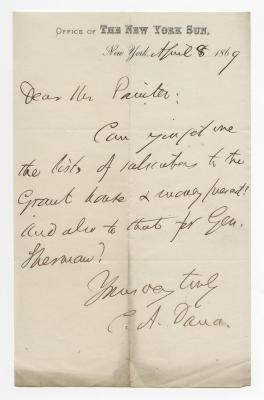 OFFICE OF THE NEW YORK SUN,
New York, April 8 1869
Dear Mr Painter:
Can you get me
the lists of subscribers to the
Grant house & money present?
And also to that for Gen.
Sherman?
Yours very truly
C. A. Dana.